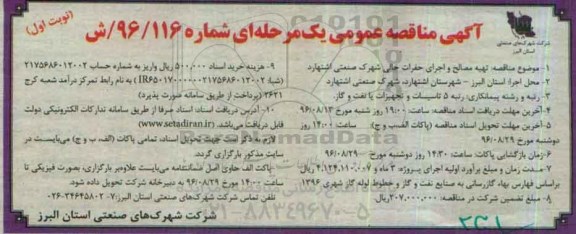 (نوبت اول)
آگهی مناقصه عمومی یک‌مرحله‌ای شماره ۹۶/۱۱۶/ش
شرکت شهرک‌های صنعتی
استان البرز
۱- موضوع مناقصه: تهیه مصالح و اجرای حفرات خالی شهرک صنعتی اشتهارد
۲- محل اجرا: استان البرز - شهرستان اشتهارد، شهرک صنعتی اشتهارد
۳- رتبه و رشته پیمانکاری: رتبه ۵ تاسیسات و تجهیزات یا نفت و گاز
۴- آخرین مهلت دریافت اسناد مناقصه: ساعت ۱۹:۰۰ روز شنبه مورخ ۹۶/۰۸/۱۳
۵- آخرین مهلت تحویل اسناد مناقصه (پاکات الف ب و ج) ساعت ۱۴:۰۰ روز
دوشنبه مورخ ۹۶/۰۸/۲۹
۶- زمان بازگشایی پاکات: ساعت: ۱۴:۳۰ روز دوشنبه مورخ ۹۶/۰۸/۲۹
۷- مدت زمان و مبلغ برآورد اولیه اجرای پروژه: ۳ ماه و ۴.۱۲۴.۱۱۰.۰۰۷ ریال
براساس فهارس بهاء گازرسانی به صنایع نفت و گاز و خطوط لوله گاز شهری ۱۳۹۶
۸- مبلغ تضمین شرکت در مناقصه: ۲۰۷.۰۰۰.۰۰۰ ریال
۹- هزینه خرید اسناد ۵۰۰.۰۰۰ ریال واریز به شماره حساب ۲۱۷۵۶۸۶۰۱۲۰۰۲
به نام رابط تمرکز درآمد شعبه کرج
۲۶۲۱ (پرداخت از طریق سامانه صورت پذیرد)
۱۰- آدرس دریافت اسناد: اسناد صرفا از طریق سامانه تدارکات الکترونیکی دولت
قابل دریافت می‌باشد. (www.setadiran.ir)
لازم به ذکر است جهت تحویل اسناد، تمامی پاکات (الف، ب و ج) می‌بایست در
سایت مذکور بارگزاری گردد.
پاکت الف حاوی اصل ضمانتنامه می‌بایست علاوه‌بر بارگزاری، بصورت فیزیکی تا
ساعت ۱۴:۰۰ مورخ ۹۶/۰۸/۲۹ به دبیرخانه شرکت تحویل داده شود.
تلفن تماس شرکت شهرک‌های صنعتی استان البرز: ۷-۳۴۶۴۵۸۰۲-۰۲۶
شرکت شهرک‌های صنعتی استان البرز
۰۲۱-۸۸۳۴۹۶۷۰-۵